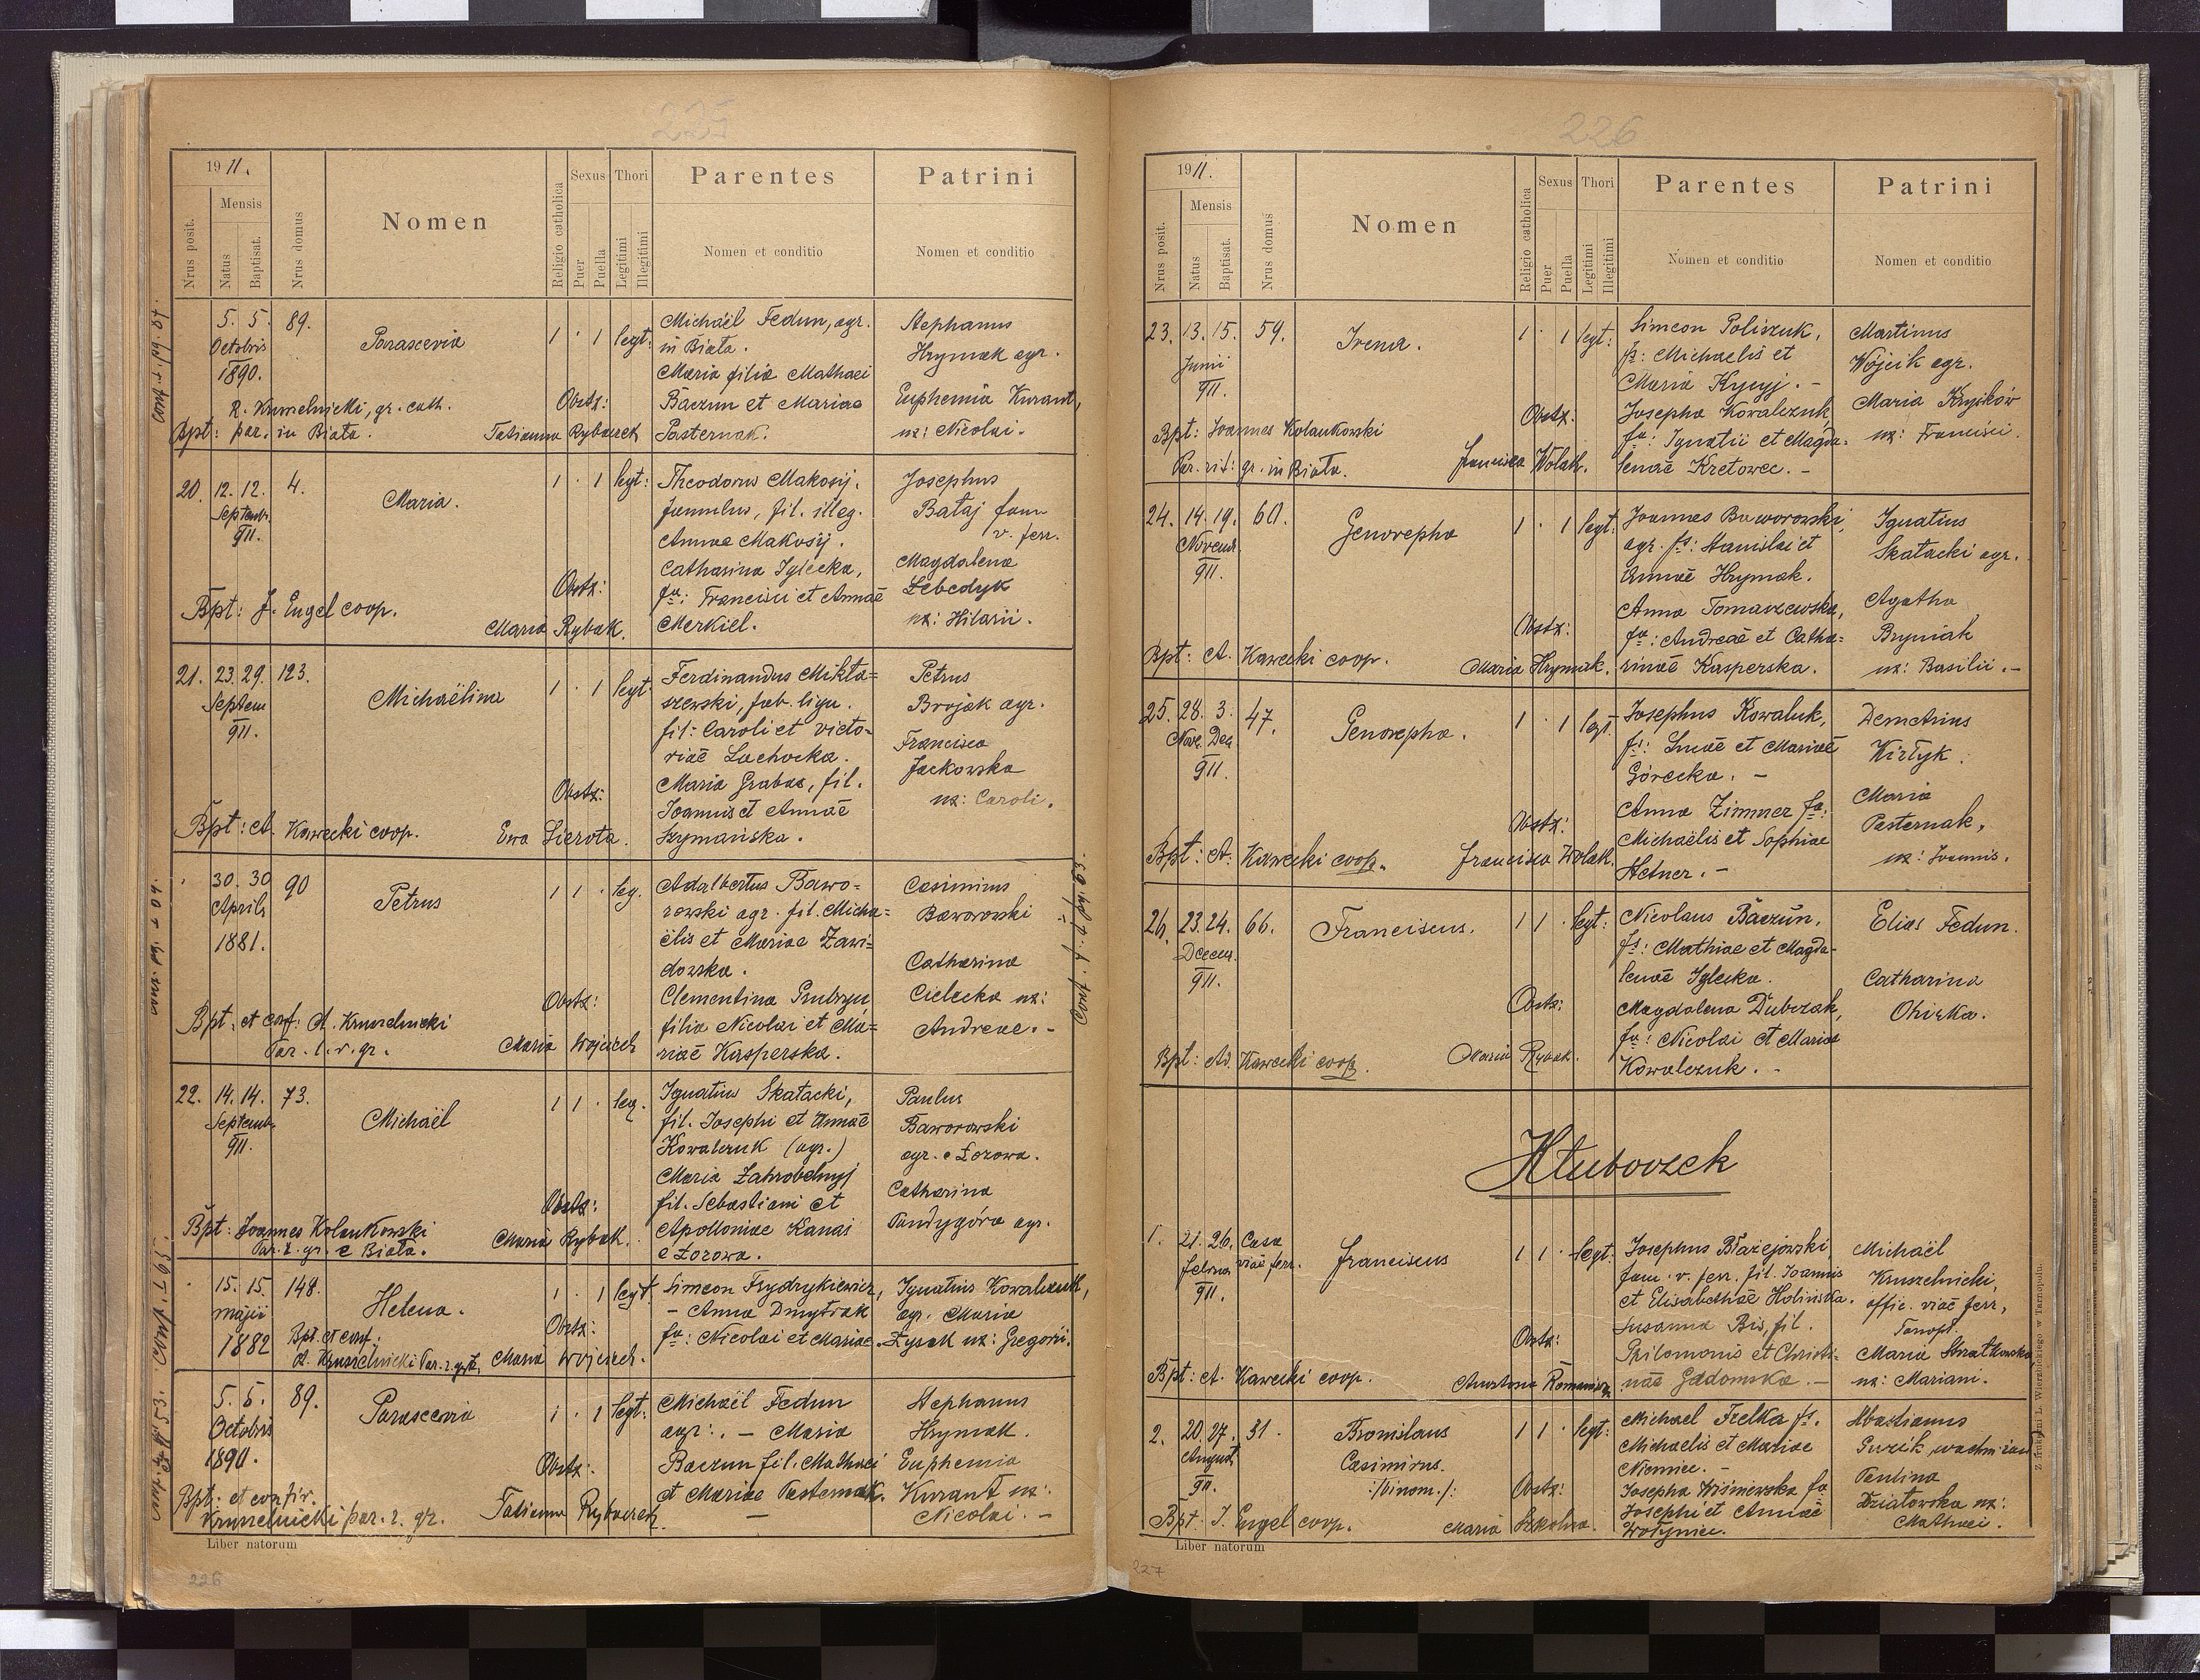 225
19 11.
Mensis
Nrus posit.
Natus
Baptisat.
Nrus domus
Nomen
Religio catholica
Sexus
Puer
Puella
Thori
Legitimi
Illegitimi
Parentes
Nomen et conditio
Patrini
Nomen et conditio
5. 5. 89.
Octobris
1890.
Parascevia
1 · 1 legt:
Michaël Fedun, agr.
in Biała.
Maria filia Mathaei
Baczun et Mariae
Pasternak.
Stephanus
Hrymak agr.
Euphemia Kurant,
ux: Nicolai.
R. Kruszelnicki, gr. cath.
Bpt: par. in Biała.
Obstx:
Tatianna Rybaczek
20. 12. 12. 4.
Septemb.
911.
Maria.
1 · 1 legt:
Theodorus Makosij.
famulus, fil. illeg.
Annae Makosij.
Catharina Iglecka,
fa: Francisci et Annae
Merkiel.
Josephus
Bataj fam
v. ferr.
Magdalena
Lebedyk
ux: Hilarii.
Bpt: J. Engel coop.
Obstx:
Maria Rybak.
21. 23. 29. 123.
Septem
911.
Michaëlina
1 · 1 legt.
Ferdinandus Mikta=
szewski, fab. lign.
fil: Caroli et Victo=
riae Lachocka.
Maria Grabas, fil.
Joannis et Annae
Szymańska.
Petrus
Brojak agr.
Francisca
Jackowska
ux: Caroli.
Bpt: A. Kawecki coop.
Obstx:
Ewa Sierota.
30. 30 90
Aprili
1881.
Petrus
1 1 · leg.
Adalbertus Bawo=
rowski agr. fil. Micha=
ëlis et Mariae Zawi=
dowska.
Clementina
filia Nicolai et Ma=
riae Kasperska.
Casimirus
Baworowski
Catharina
Cielecka ux:
Andreae. -
Bpt. et conf: A. Kruszelnicki
Par. l. r. gr.
Obstx:
Maria Wojciech
22. 14. 14. 73.
Septemb.
911.
Michaël
1 1 · leg.
Ignatius Skatacki,
fil. Josephi et Annae
Kowalczuk (agr.)
Maria Zahrobelnyj
fil. Sebastiani et
Apolloniae Kanas
e Łozowa.
Paulus
Baworowski
agr. e Łozowa.
Catharina
Pandygóra agr.
Bpt: Joannes Kolankowski
Par. r. gr. e Biała.
Obstx:
Maria Rybak.
15. 15. 148.
Maji
1882
Helena.
1 · 1 legt.
Simeon Frydrykiewicz,
- Anna Dmytrak
fa: Nicolai et Mariae
Ignatius Kowalczuk,
agr. Maria
Zysak ux: Gregorii.
Bpt. et conf.
A. Kruszelnicki Par. r. gr.
Obstx:
Maria Wojciech.
5. 5. 89.
Octobris
1890.
Parascevia
1 · 1 legt:
Michaël Fedun
agr:. - Maria
Baczun fil. Mathaei
et Mariae Pasternak.
Stephanus
Hrymak.
Euphemia
Kurant ux:
Nicolai. -
Bpt: et confir.
Kruszelnicki par. r. gr.
Obstx:
Tatianna Rybaczek
Liber natorum
226
226
19 11.
Mensis
Nrus posit.
Natus
Baptisat.
Nrus domus
Nomen
Religio catholica
Sexus
Puer
Puella
Thori
Legitimi
Illegitimi
Parentes
Nomen et conditio
Patrini
Nomen et conditio
23. 13. 15. 59.
Junii
911.
Irena.
1 · 1 legt:
Simeon Poliszuk,
fs: Michaelis et
Maria Kycyj. -
Josepha Kowalczuk,
fa: Ignatii et Magda=
lenae Kretowec. -
Martinus
Wójcik agr.
Maria Kryików
ux: Francisci.
Bpt: Joannes Kolankowski
Par. rit: gr. in Biała.
Obstx:
Francisca Wolak.
24. 14. 19. 60.
Novem.
911.
Genovepha
1 · 1 legt:
Joannes Baworowski,
agr. fs: Stanislai et
Annae Hrymak.
Anna Tomaszewska,
fa: Andreae et Catha=
rinae Kasperska.
Ignatius
Skatacki agr.
Agatha
Bryniak
ux: Basilii. -
Bpt: A. Kawecki coop.
Obstx:
Maria Hrymak.
25. 28. 3. 47.
Nov. Dec.
911.
Genovepha.
1 · 1 legt.
Josephus Kowaluk,
fs: Lucae et Mariae
Górecka. -
Anna Zimmer fa:
Michaëlis et Sophiae
Hetner. -
Demetrius
Kirłyk.
Maria
Pasternak,
ux: Joannis.
Bpt: A. Kawecki coop.
Obstx:
Francisca Wolak.
26. 23. 24. 66.
Decem.
911.
Franciscus.
1 1 · legt:
Nicolaus Baczun,
fs: Mathiae et Magda=
lenae Iglecka.
Magdalena Dubczak,
fa: Nicolai et Mariae
Kowalczuk. -
Elias Fedun.
Catharina
Obizka.
Bpt: Ad. Kawecki coop.
Obstx:
Maria Rybak.
Hłuboczek
1. 21. 26. Casa
Februa viae ferr.
911.
Franciscus
1 1 · legt:
Josephus Błażejowski,
fam. v. ferr. fil. Joannis
et Elisabethae Holińska.
Susanna Bis, fil.
Philomonis et Christi=
nae Gadomska. -
Michaël
Kruszelnicki,
offic. viae ferr,
Tarnopl.
Maria
ux: Mariani.
Bpt: A. Kawecki coop.
Obstx:
Anastasia Romanów
2. 20. 27. 31.
August
911.
Bronislaus
Casimirus.
:/binom./:
1 1 · legt:
Michael Frelka fs.
Michaelis et Mariae
Niemiec. -
Josepha Wiśniewska fa
Josephi et Annae
Wołyniec.
Sbastianus
Guzik
Paulina
Działowska ux:
Mathaei.
Bpt. J. Engel coop.
Obstx:
Maria Szkolna.
Liber natorum
227